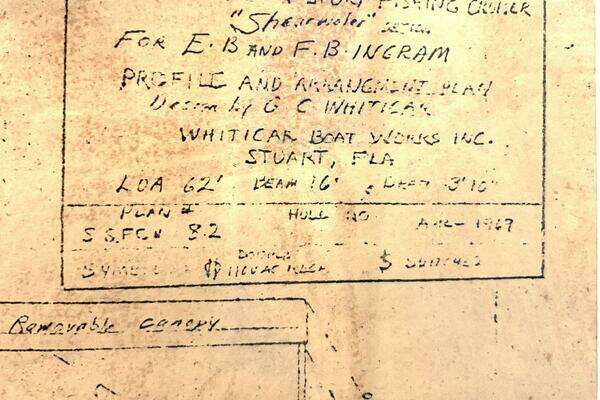 SPORT FISHING CRUISER
"Shearwater" DESIGN
FOR E.B AND F.B. INGRAM
PROFILE AND ARRANGMENT PLAN
Design by G C WHITICAR
WHITICAR BOAT WORKS INC.
STUART, FLA
LOA 62' BEAM 16' DRAFT 3'10"
PLAN # HULL NO
S.S.FCN 8.2 1967
DOUBLE
$
Removable canopy